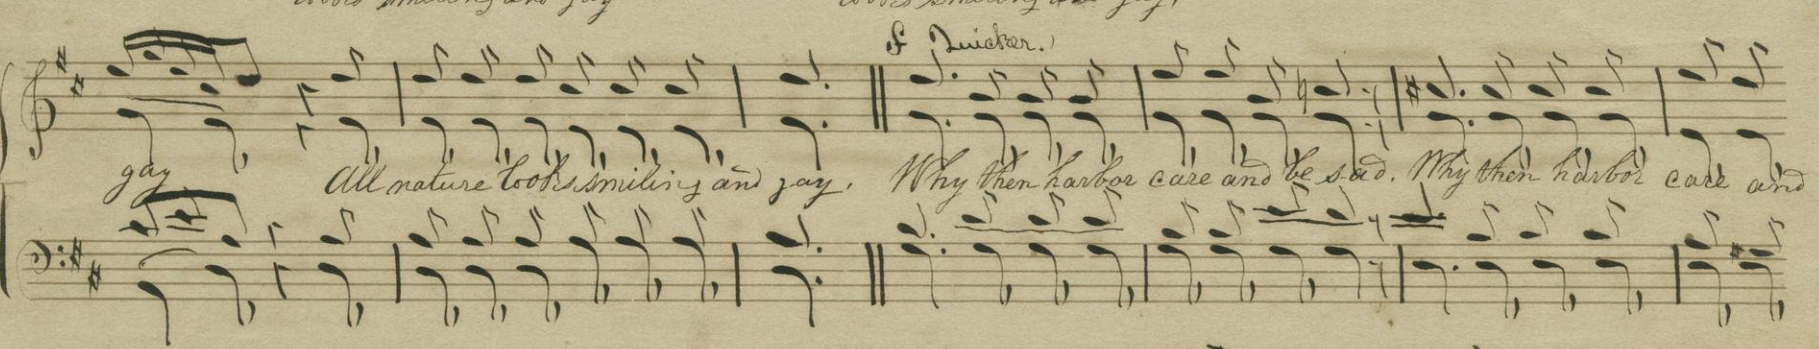 looks smiling and gay looks smiling and gay,
f Quicker.
gay All nature looks smiling and gay. Why then harbor care and be sad. Why then harbor care and